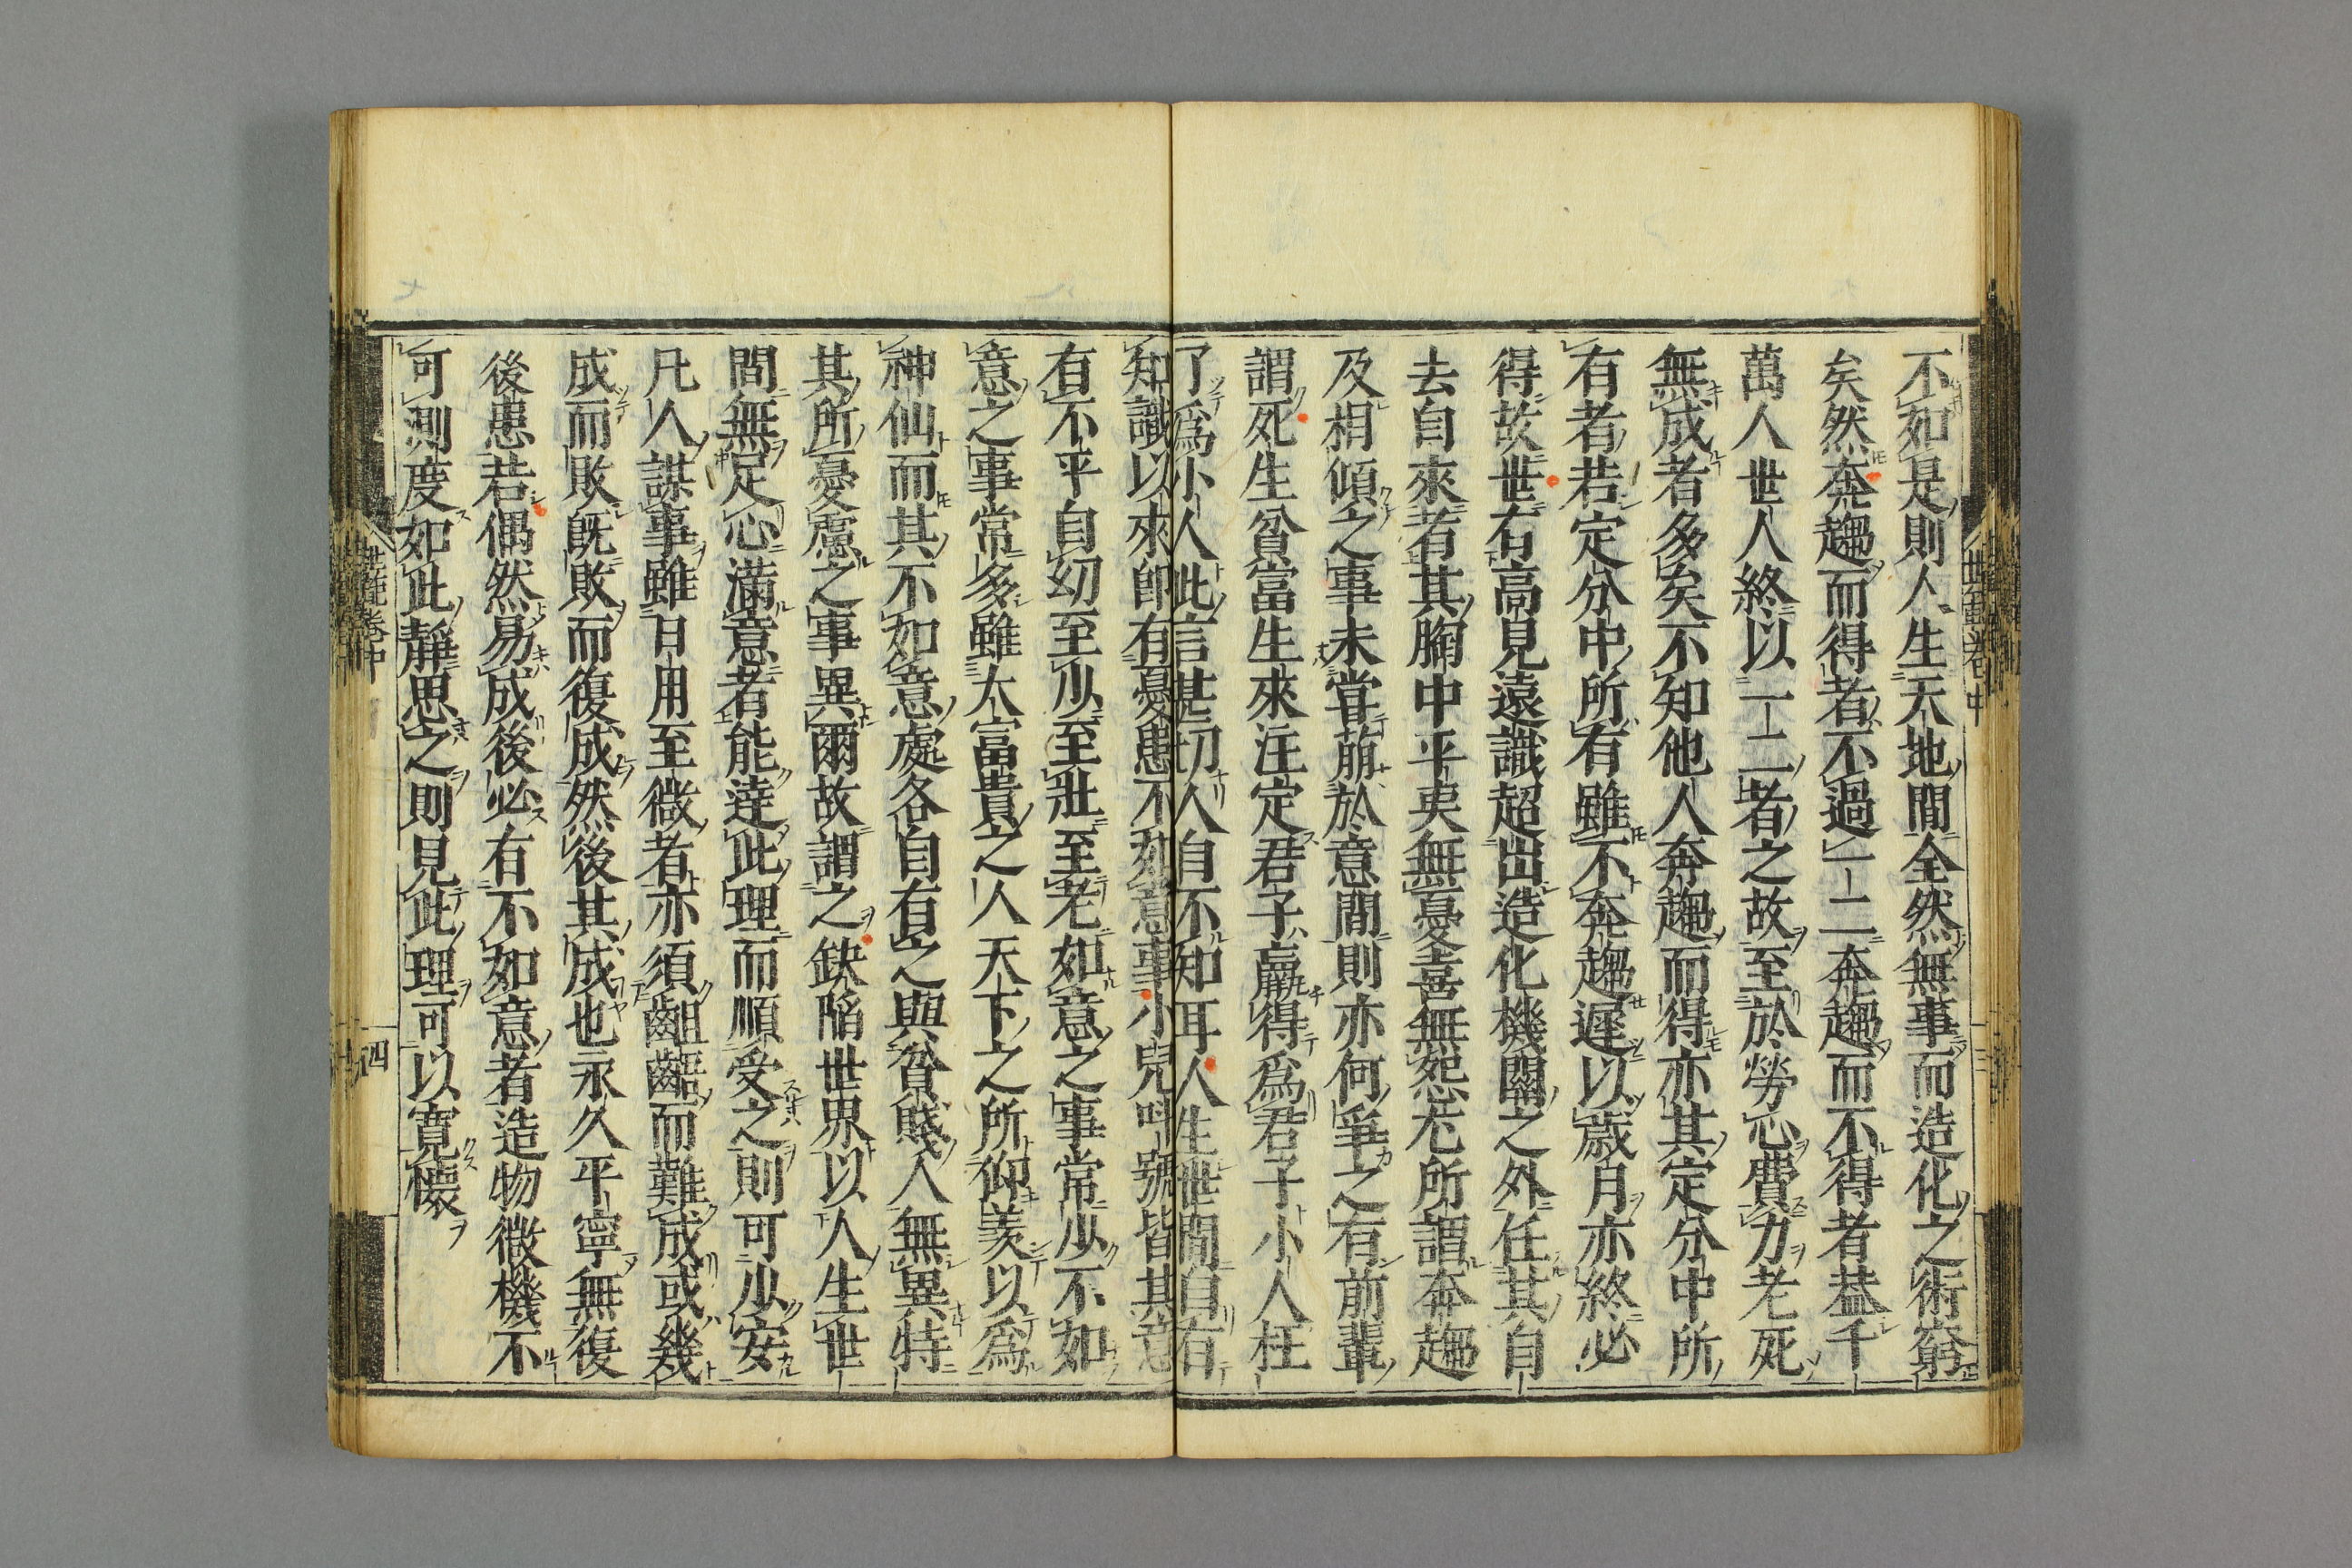 不如是則人生天地間全然無事而造化之術窮
矣然奔趨而得者不過一二奔趨而不得者蓋千
萬人世人終以一二者之故至於勞心費力老死
無成者多矣不知他人奔趨而得亦其定分中所
有者若定分中所有雖不奔趨遲以歲月亦終必
得故世有高見遠識超出造化機關之外任其自
去自來者其胸中平夷無憂喜無怨尤所謂奔趨
及相傾之事未嘗萠於意間則亦何爭之有前輩
謂死生貧富生來注定君子贏得爲君子小人枉
了爲小人此言甚切人自不知耳人生世間自有
知識以來卽有憂患不如意事小兒呌號皆其意
有不平自幼至少至壯至老如意之事常少不如
意之事常多雖大富貴之人天下之所仰羨以爲
神仙而其不如意處各自有之與貧賤人無異特
其所憂慮之事異爾故謂之缺陷世界以人生世
間無足心滿意者能達此理而順受之則可少安
凡人謀事雖日用至微者亦須齟齬而難成或幾
成而敗旣敗而復成然後其成也永久平寧無復
後患若偶然易成後必有不如意者造物微機不
可測度如此靜思之則見此理可以寬懷
世範卷中
四